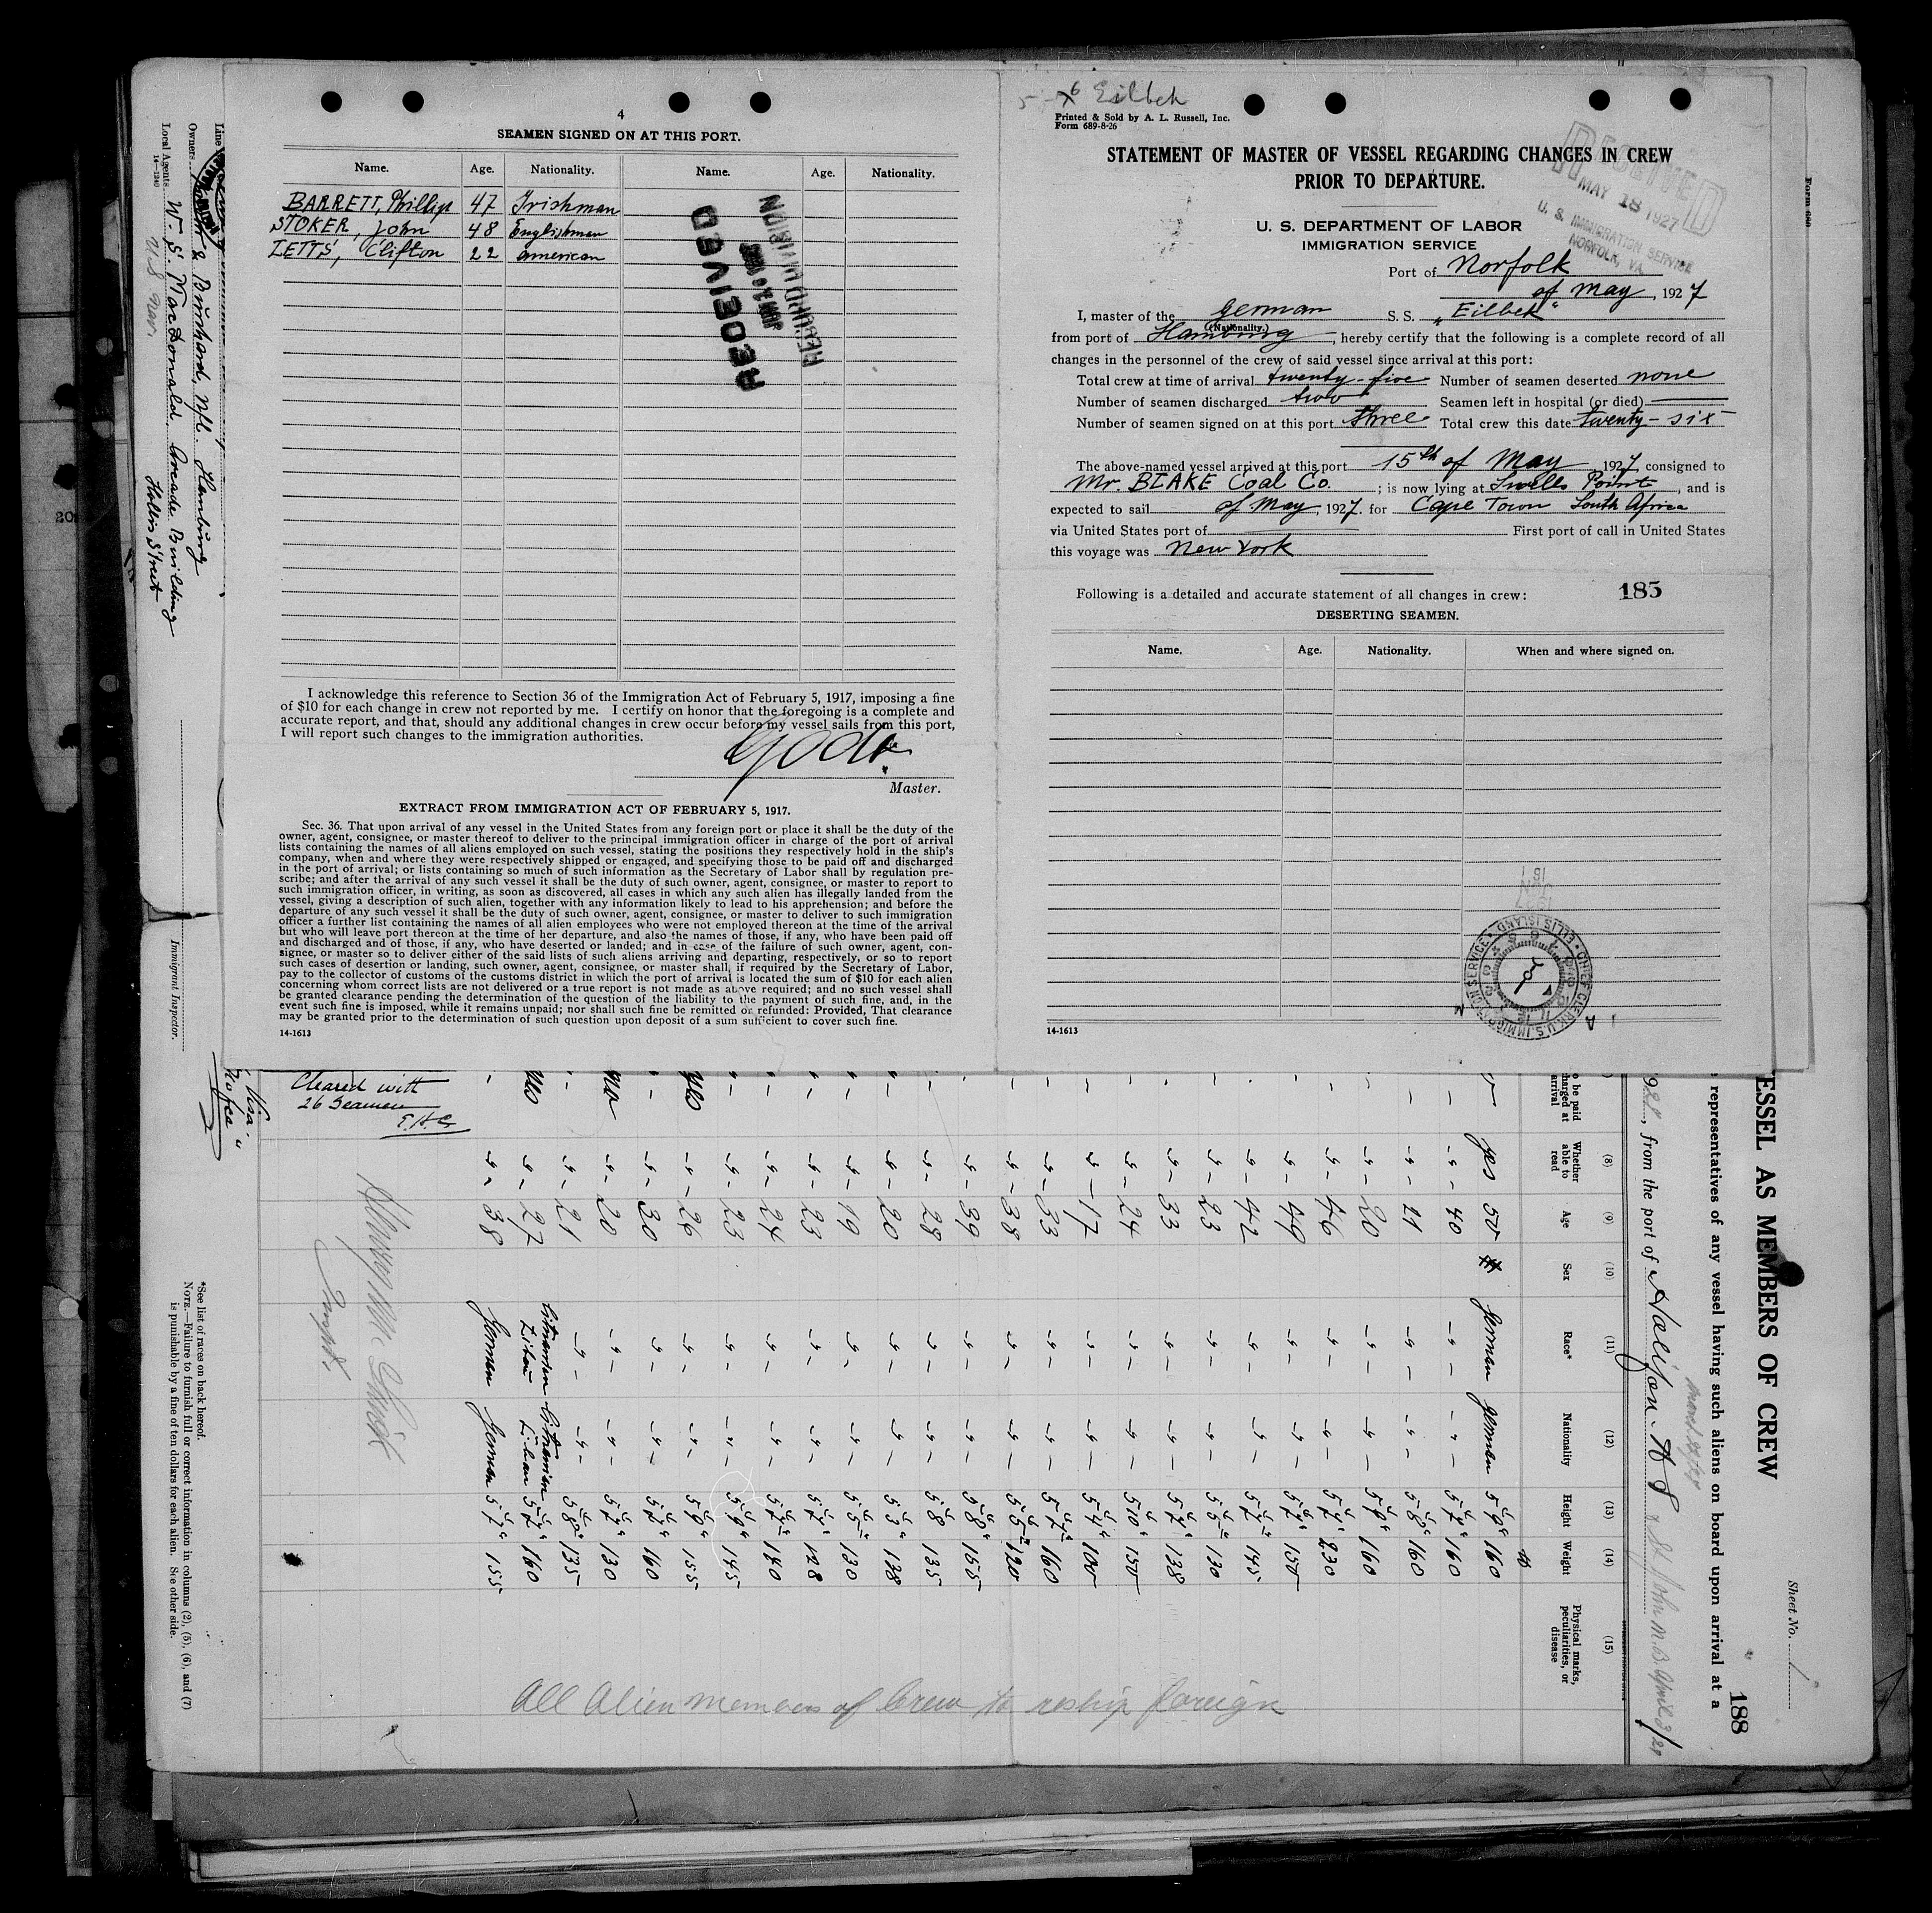 4
SEAMEN SIGNED ON AT THIS PORT.
Name. Age. Nationality. Name. Age. Nationality.
BARRETT, Phillip 47 Irishman
STOKER, John 48 Englishman
LETTS, Clifton 22 american
RECEIVED
RECORD DIVISION
I acknowledge this reference to Section 36 of the Immigration Act of February 5, 1917, imposing a fine
of $10 for each change in crew not reported by me. I certify on honor that the foregoing is a complete and
accurate report, and that, should any additional changes in crew occur before my vessel sails from this port,
I will report such changes to the immigration authorities.
Master.
EXTRACT FROM IMMIGRATION ACT OF FEBRUARY 5, 1917.
Sec. 36. That upon arrival of any vessel in the United States from any foreign port or place it shall be the duty of the
owner, agent, consignee, or master thereof to deliver to the principal immigration officer in charge of the port of arrival
lists containing the names of all aliens employed on such vessel, stating the positions they respectively hold in the ship's
company, when and where they were respectively shipped or engaged, and specifying those to be paid off and discharged
in the port of arrival; or lists containing so much of such information as the Secretary of Labor shall by regulation pre-
scribe; and after the arrival of any such vessel it shall be the duty of such owner, agent, consignee, or master to report to
such immigration officer, in writing, as soon as discovered, all cases in which any such alien has illegally landed from the
vessel, giving a description of such alien, together with any information likely to lead to his apprehension; and before the
departure of any such vessel it shall be the duty of such owner, agent, consignee, or master to deliver to such immigration
officer a further list containing the names of all alien employees who were not employed thereon at the time of the arrival
but who will leave port thereon at the time of her departure, and also the names of those, if any, who have been paid off
and discharged and of those, if any, who have deserted or landed; and in case of the failure of such owner, agent, con-
signee, or master so to deliver either of the said lists of such aliens arriving and departing, respectively, or so to report
such cases of desertion or landing, such owner, agent, consignee, or master shall, if required by the Secretary of Labor,
pay to the collector of customs of the customs district in which the port of arrival is located the sum of $10 for each alien
concerning whom correct lists are not delivered or a true report is not made as above required; and no such vessel shall
be granted clearance pending the determination of the question of the liability to the payment of such fine, and, in the
event such fine is imposed, while it remains unpaid; nor shall such fine be remitted or refunded: Provided, That clearance
may be granted prior to the determination of such question upon deposit of a sum sufficient to cover such fine.
14-1613
Eilbek
Printed & Sold by A. L. Russell, Inc.
Form 689-8-26
STATEMENT OF MASTER OF VESSEL REGARDING CHANGES IN CREW
PRIOR TO DEPARTURE.
RECEIVED
MAY 18 1927
U. S. IMMIGRATION SERVICE
NORFOLK, VA.
U. S. DEPARTMENT OF LABOR
IMMIGRATION SERVICE
Port of Norfolk
of May, 1927
I, master of the german S. S. "Eilbek"
(Nationality.)
from port of Hamburg, hereby certify that the following is a complete record of all
changes in the personnel of the crew of said vessel since arrival at this port:
Total crew at time of arrival twenty-five Number of seamen deserted none
Number of seamen discharged two Seamen left in hospital (or died)
Number of seamen signed on at this port three Total crew this date twenty-six
The above-named vessel arrived at this port 15th of May, 1927, consigned to
Mr. BLAKE Coal Co.; is now lying at Swells Point, and is
expected to sail of May, 1927. for Cape Town South Africa
via United States port of First port of call in United States
this voyage was New York
Following is a detailed and accurate statement of all changes in crew: 185
DESERTING SEAMEN.
Name. Age. Nationality. When and where signed on.
CHIEF CLERK, U.S. IMMIGRATION SERVICE ELLIS ISLAND
14-1613
Form 689
Owners & Burchard, Hamburg
Local Agents W. S. MacDonald, Arcade Building
Hollis Street
14-1240
Immigrant Inspector.
Cleared with
26 Seamen
Visa
No fee
Sheet No. 1
188
ESSEL AS MEMBERS OF CREW
representatives of any vessel having such aliens on board upon arrival at a
from the port of Halifax N S
(8) (9) (10) (11) (12) (13) (14) (15)
Whether able to read Age Sex Race* Nationality Height Weight Physical marks, peculiarities, or disease
yes 50 German German 160
40 160
21 160
20 160
46 230
49 150
42 145
23 130
33 138
24 150
17 100
33 160
38 120
39 155
28 135
20 138
19 130
23 128
24 180
23 145
26 155
30 160
20 130
21 135
27 160
38 German German 155
All Alien members of Crew to reship foreign
*See list of races on back hereof.
NOTE.—Failure to furnish full or correct information in columns (2), (5), (6), and (7)
is punishable by a fine of ten dollars for each alien. See other side.